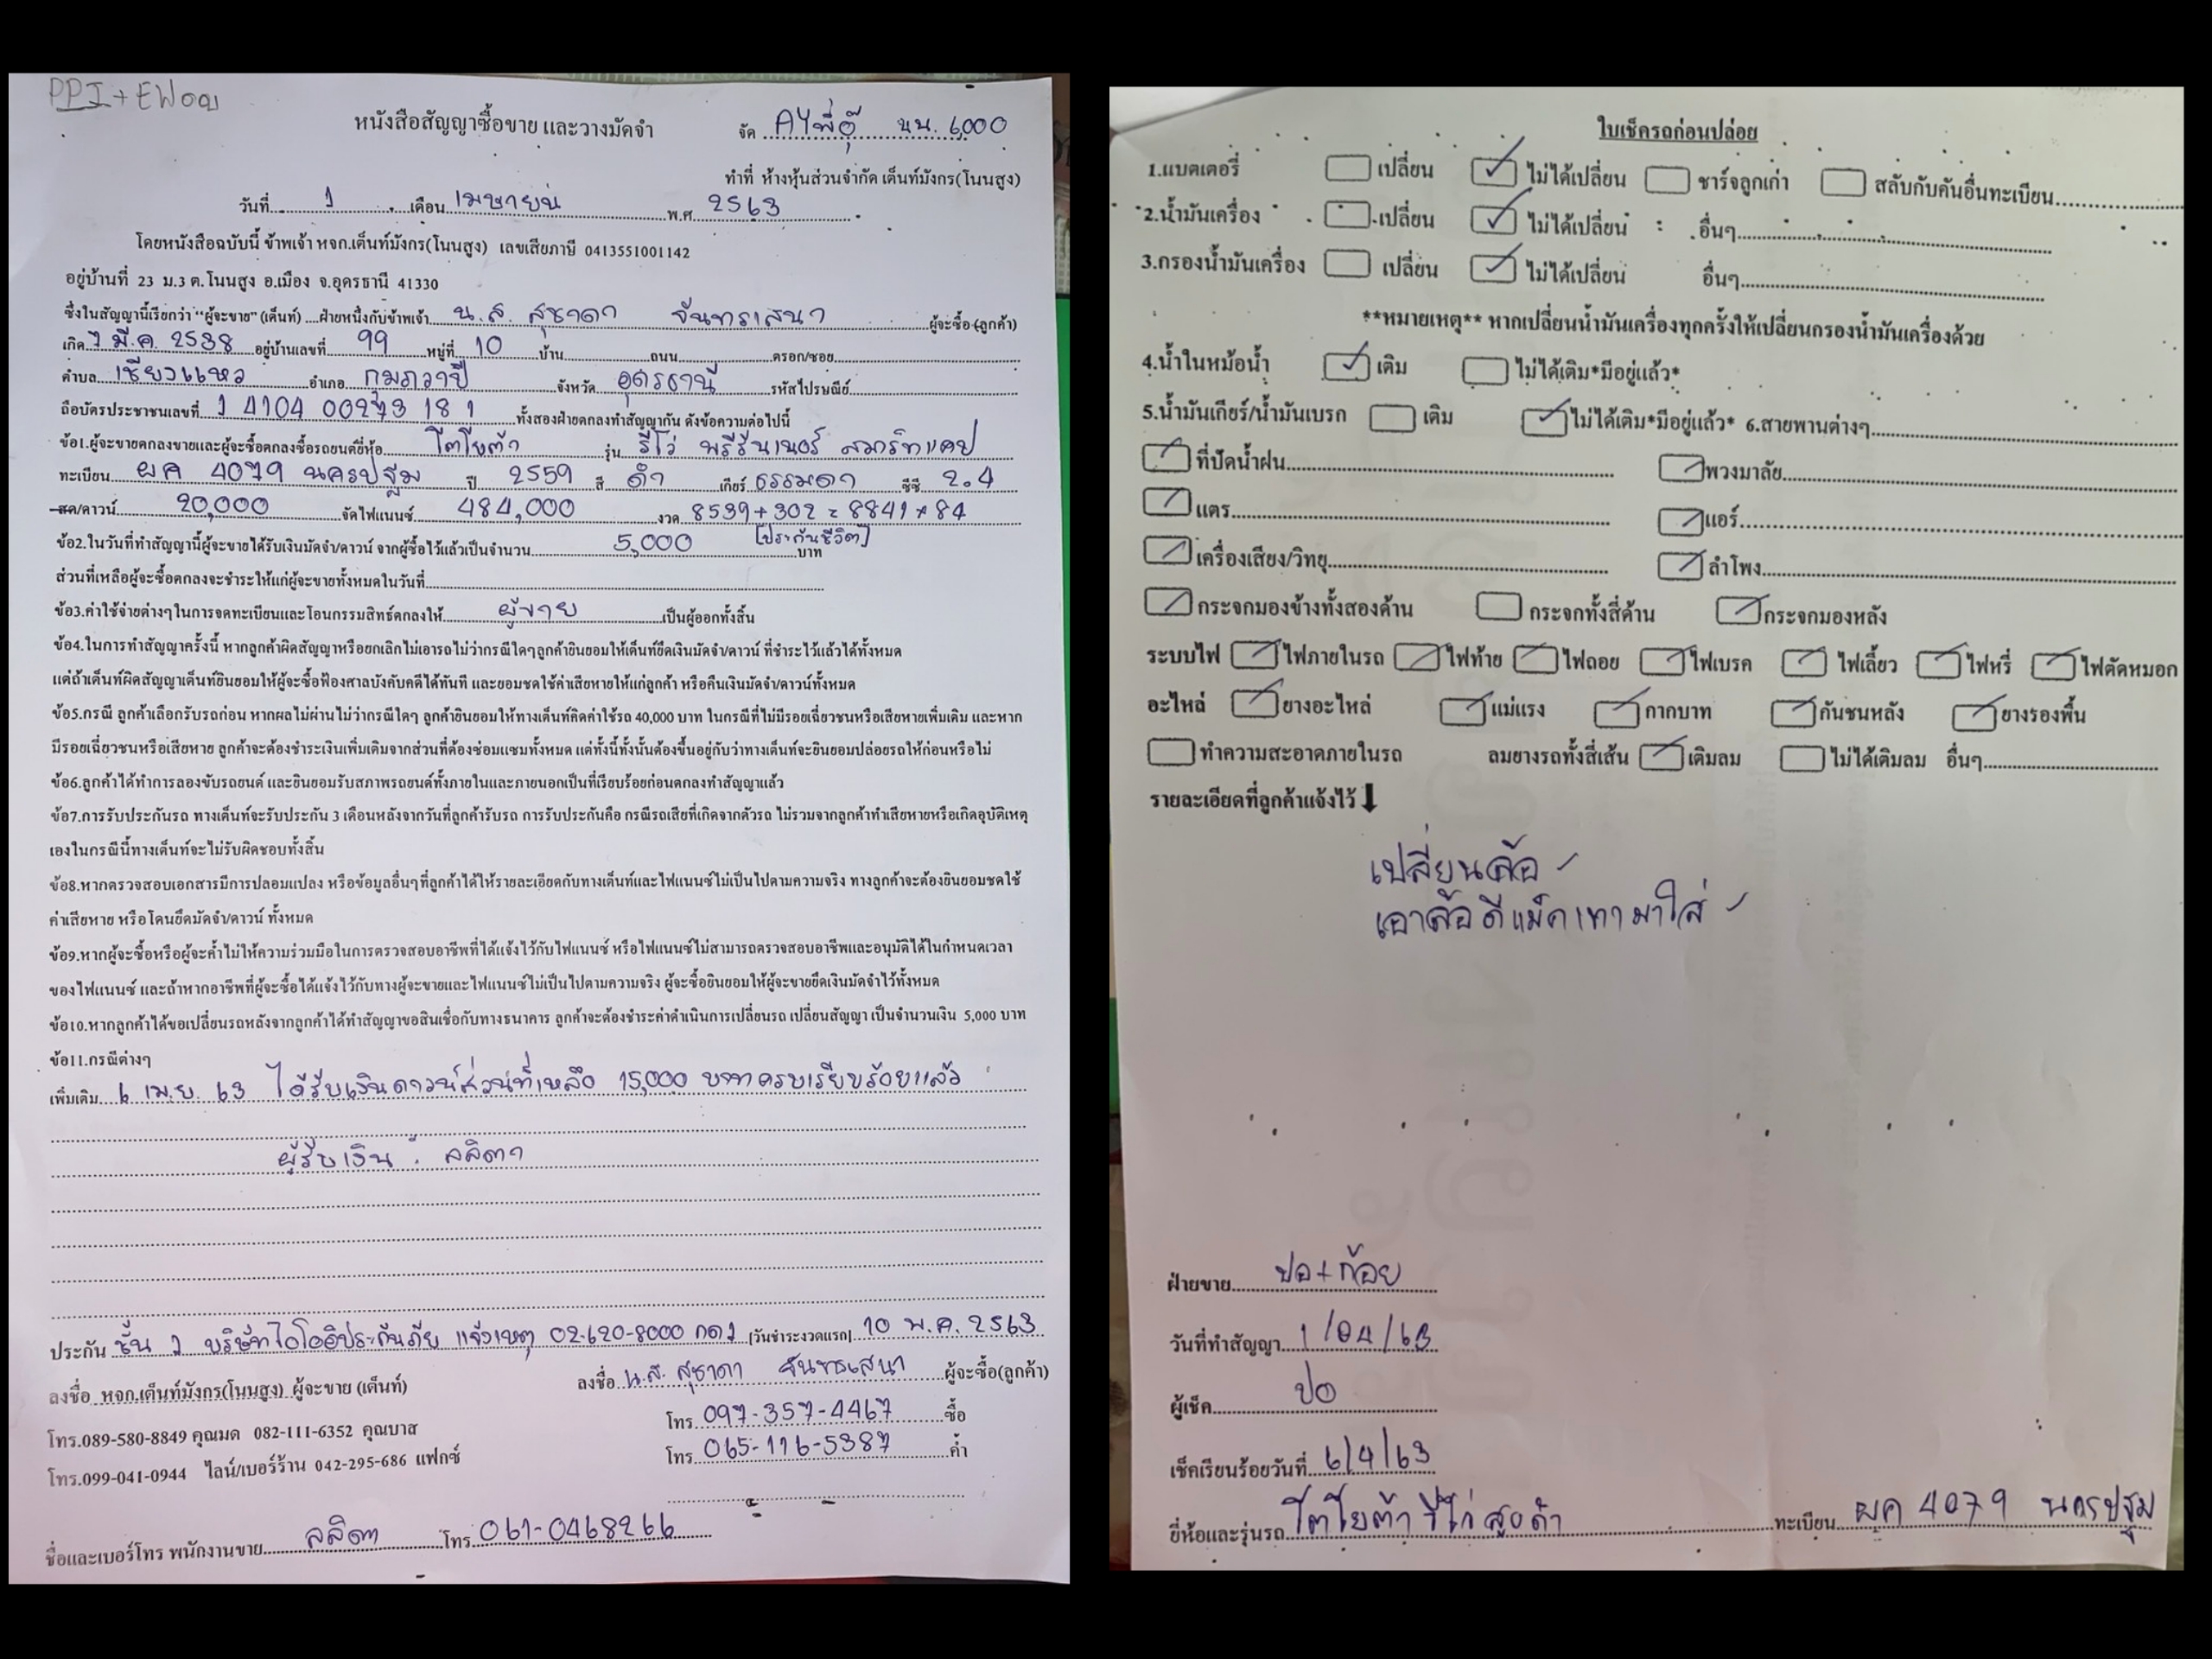 PPI + EW๐๑
หนังสือสัญญาซื้อขาย และวางมัดจำ
จัด AYพี่อุ๊ นน. 6,000
ทำที่ ห้างหุ้นส่วนจำกัด เต็นท์มังกร(โนนสูง)
วันที่ 1 เดือน เมษายน พ.ศ 2563
โดยหนังสือฉบับนี้ ข้าพเจ้า หจก.เต็นท์มังกร(โนนสูง) เลขเสียภาษี 0413551001142
อยู่บ้านที่ 23 ม.3 ต.โนนสูง อ.เมือง จ.อุดรธานี 41330
ซึ่งในสัญญานี้เรียกว่า "ผู้จะขาย" (เต็นท์) ....ฝ่ายหนึ่งกับข้าพเจ้า น.ส. สุชาดา จันทรเสนา ผู้จะซื้อ (ลูกค้า)
เกิด 7 มี.ค. 2538 อยู่บ้านเลขที่ 99 หมู่ที่ 10 บ้าน ถนน ตรอก/ซอย
ตำบล เชียงแหว อำเภอ กุมภวาปี จังหวัด อุดรธานี รหัสไปรษณีย์
ถือบัตรประชาชนเลขที่ 1 4104 00273 18 1 ทั้งสองฝ่ายตกลงทำสัญญากัน ดังข้อความต่อไปนี้
ข้อ1.ผู้จะขายตกลงขายและผู้จะซื้อตกลงซื้อรถยนต์ยี่ห้อ โตโยต้า รุ่น รีโว่ พรีรันเนอร์ สมาร์ทแคป
ทะเบียน ผค 4079 นครปฐม ปี 2559 สี ดำ เกียร์ ธรรมดา ซีซี 2.4
สด/ดาวน์ 20,000 จัดไฟแนนซ์ 484,000 งวด 8539+302 = 8841*84
[ประกันชีวิต]
ข้อ2.ในวันที่ทำสัญญานี้ผู้จะขายได้รับเงินมัดจำ/ดาวน์ จากผู้ซื้อไว้แล้วเป็นจำนวน 5,000 บาท
ส่วนที่เหลือผู้จะซื้อตกลงจะชำระให้แก่ผู้จะขายทั้งหมดในวันที่
ข้อ3.ค่าใช้จ่ายต่างๆในการจดทะเบียนและโอนกรรมสิทธ์ตกลงให้ ผู้ขาย เป็นผู้ออกทั้งสิ้น
ข้อ4.ในการทำสัญญาครั้งนี้ หากลูกค้าผิดสัญญาหรือยกเลิกไม่เอารถไม่ว่ากรณีใดๆลูกค้ายินยอมให้เต็นท์ยึดเงินมัดจำ/ดาวน์ ที่ชำระไว้แล้วได้ทั้งหมด
แต่ถ้าเต็นท์ผิดสัญญาเต็นท์ยินยอมให้ผู้จะซื้อฟ้องศาลบังคับคดีได้ทันที และยอมชดใช้ค่าเสียหายให้แก่ลูกค้า หรือคืนเงินมัดจำ/ดาวน์ทั้งหมด
ข้อ5.กรณี ลูกค้าเลือกรับรถก่อน หากผลไม่ผ่านไม่ว่ากรณีใดๆ ลูกค้ายินยอมให้ทางเต็นท์คิดค่าใช้รถ 40,000 บาท ในกรณีที่ไม่มีรอยเฉี่ยวชนหรือเสียหายเพิ่มเติม และหาก
มีรอยเฉี่ยวชนหรือเสียหาย ลูกค้าจะต้องชำระเงินเพิ่มเติมจากส่วนที่ต้องซ่อมแซมทั้งหมด แต่ทั้งนี้ทั้งนั้นต้องขึ้นอยู่กับว่าทางเต็นท์จะยินยอมปล่อยรถให้ก่อนหรือไม่
ข้อ6.ลูกค้าได้ทำการลองขับรถยนต์ และยินยอมรับสภาพรถยนต์ทั้งภายในและภายนอกเป็นที่เรียบร้อยก่อนตกลงทำสัญญาแล้ว
ข้อ7.การรับประกันรถ ทางเต็นท์จะรับประกัน 3 เดือนหลังจากวันที่ลูกค้ารับรถ การรับประกันคือ กรณีรถเสียที่เกิดจากตัวรถ ไม่รวมจากลูกค้าทำเสียหายหรือเกิดอุบัติเหตุ
เองในกรณีนี้ทางเต็นท์จะไม่รับผิดชอบทั้งสิ้น
ข้อ8.หากตรวจสอบเอกสารมีการปลอมแปลง หรือข้อมูลอื่นๆที่ลูกค้าได้ให้รายละเอียดกับทางเต็นท์และไฟแนนซ์ไม่เป็นไปตามความจริง ทางลูกค้าจะต้องยินยอมชดใช้
ค่าเสียหาย หรือโดนยึดมัดจำ/ดาวน์ ทั้งหมด
ข้อ9.หากผู้จะซื้อหรือผู้จะค้ำไม่ให้ความร่วมมือในการตรวจสอบอาชีพที่ได้แจ้งไว้กับไฟแนนซ์ หรือไฟแนนซ์ไม่สามารถตรวจสอบอาชีพและอนุมัติได้ในกำหนดเวลา
ของไฟแนนซ์ และถ้าหากอาชีพที่ผู้จะซื้อได้แจ้งไว้กับทางผู้จะขายและไฟแนนซ์ไม่เป็นไปตามความจริง ผู้จะซื้อยินยอมให้ผู้จะขายยึดเงินมัดจำไว้ทั้งหมด
ข้อ10.หากลูกค้าได้ขอเปลี่ยนรถหลังจากลูกค้าได้ทำสัญญาขอสินเชื่อกับทางธนาคาร ลูกค้าจะต้องชำระค่าดำเนินการเปลี่ยนรถ เปลี่ยนสัญญา เป็นจำนวนเงิน 5,000 บาท
ข้อ11.กรณีต่างๆ
เพิ่มเติม 6 เม.ย. 63 ได้รับเงินดาวน์ส่วนที่เหลือ 15,000 บาทครบเรียบร้อยแล้ว
ผู้รับเงิน : ลลิตา
ประกัน ชั้น 1 บริษัทไอโออิประกันภัย แจ้งเหตุ 02-620-8000 กด1 [วันชำระงวดแรก] 10 พ.ค. 2563
ลงชื่อ หจก.เต็นท์มังกร(โนนสูง) ผู้จะขาย (เต็นท์) ลงชื่อ น.ส. สุชาดา จันทรเสนา ผู้จะซื้อ(ลูกค้า)
โทร.089-580-8849 คุณมด 082-111-6352 คุณบาส โทร 097-357-4467 ซื้อ
โทร.099-041-0944 ไลน์/เบอร์ร้าน 042-295-686 แฟกซ์ โทร 065-116-5387 ค้ำ
ชื่อและเบอร์โทร พนักงานขาย ลลิตา โทร 061-0468266
ใบเช็ครถก่อนปล่อย
1.แบตเตอรี่ เปลี่ยน ไม่ได้เปลี่ยน ชาร์จลูกเก่า สลับกับคันอื่นทะเบียน
2.น้ำมันเครื่อง เปลี่ยน ไม่ได้เปลี่ยน อื่นๆ
3.กรองน้ำมันเครื่อง เปลี่ยน ไม่ได้เปลี่ยน อื่นๆ
**หมายเหตุ** หากเปลี่ยนน้ำมันเครื่องทุกครั้งให้เปลี่ยนกรองน้ำมันเครื่องด้วย
4.น้ำในหม้อน้ำ เติม ไม่ได้เติม*มีอยู่แล้ว*
5.น้ำมันเกียร์/น้ำมันเบรก เติม ไม่ได้เติม*มีอยู่แล้ว* 6.สายพานต่างๆ
ที่ปัดน้ำฝน พวงมาลัย
แตร แอร์
เครื่องเสียง/วิทยุ ลำโพง
กระจกมองข้างทั้งสองด้าน กระจกทั้งสี่ด้าน กระจกมองหลัง
ระบบไฟ ไฟภายในรถ ไฟท้าย ไฟถอย ไฟเบรค ไฟเลี้ยว ไฟหรี่ ไฟตัดหมอก
อะไหล่ ยางอะไหล่ แม่แรง กากบาท กันชนหลัง ยางรองพื้น
ทำความสะอาดภายในรถ ลมยางรถทั้งสี่เส้น เติมลม ไม่ได้เติมลม อื่นๆ
รายละเอียดที่ลูกค้าแจ้งไว้
เปลี่ยนล้อ
เอาล้อดีแม็คเทามาใส่
ฝ่ายขาย ปอ+ก้อย
วันที่ทำสัญญา 1/04/63
ผู้เช็ค ปอ
เช็คเรียบร้อยวันที่ 6/4/63
ยี่ห้อและรุ่นรถ โตโยต้า รีโว่ สูงดำ ทะเบียน ผค 4079 นครปฐม